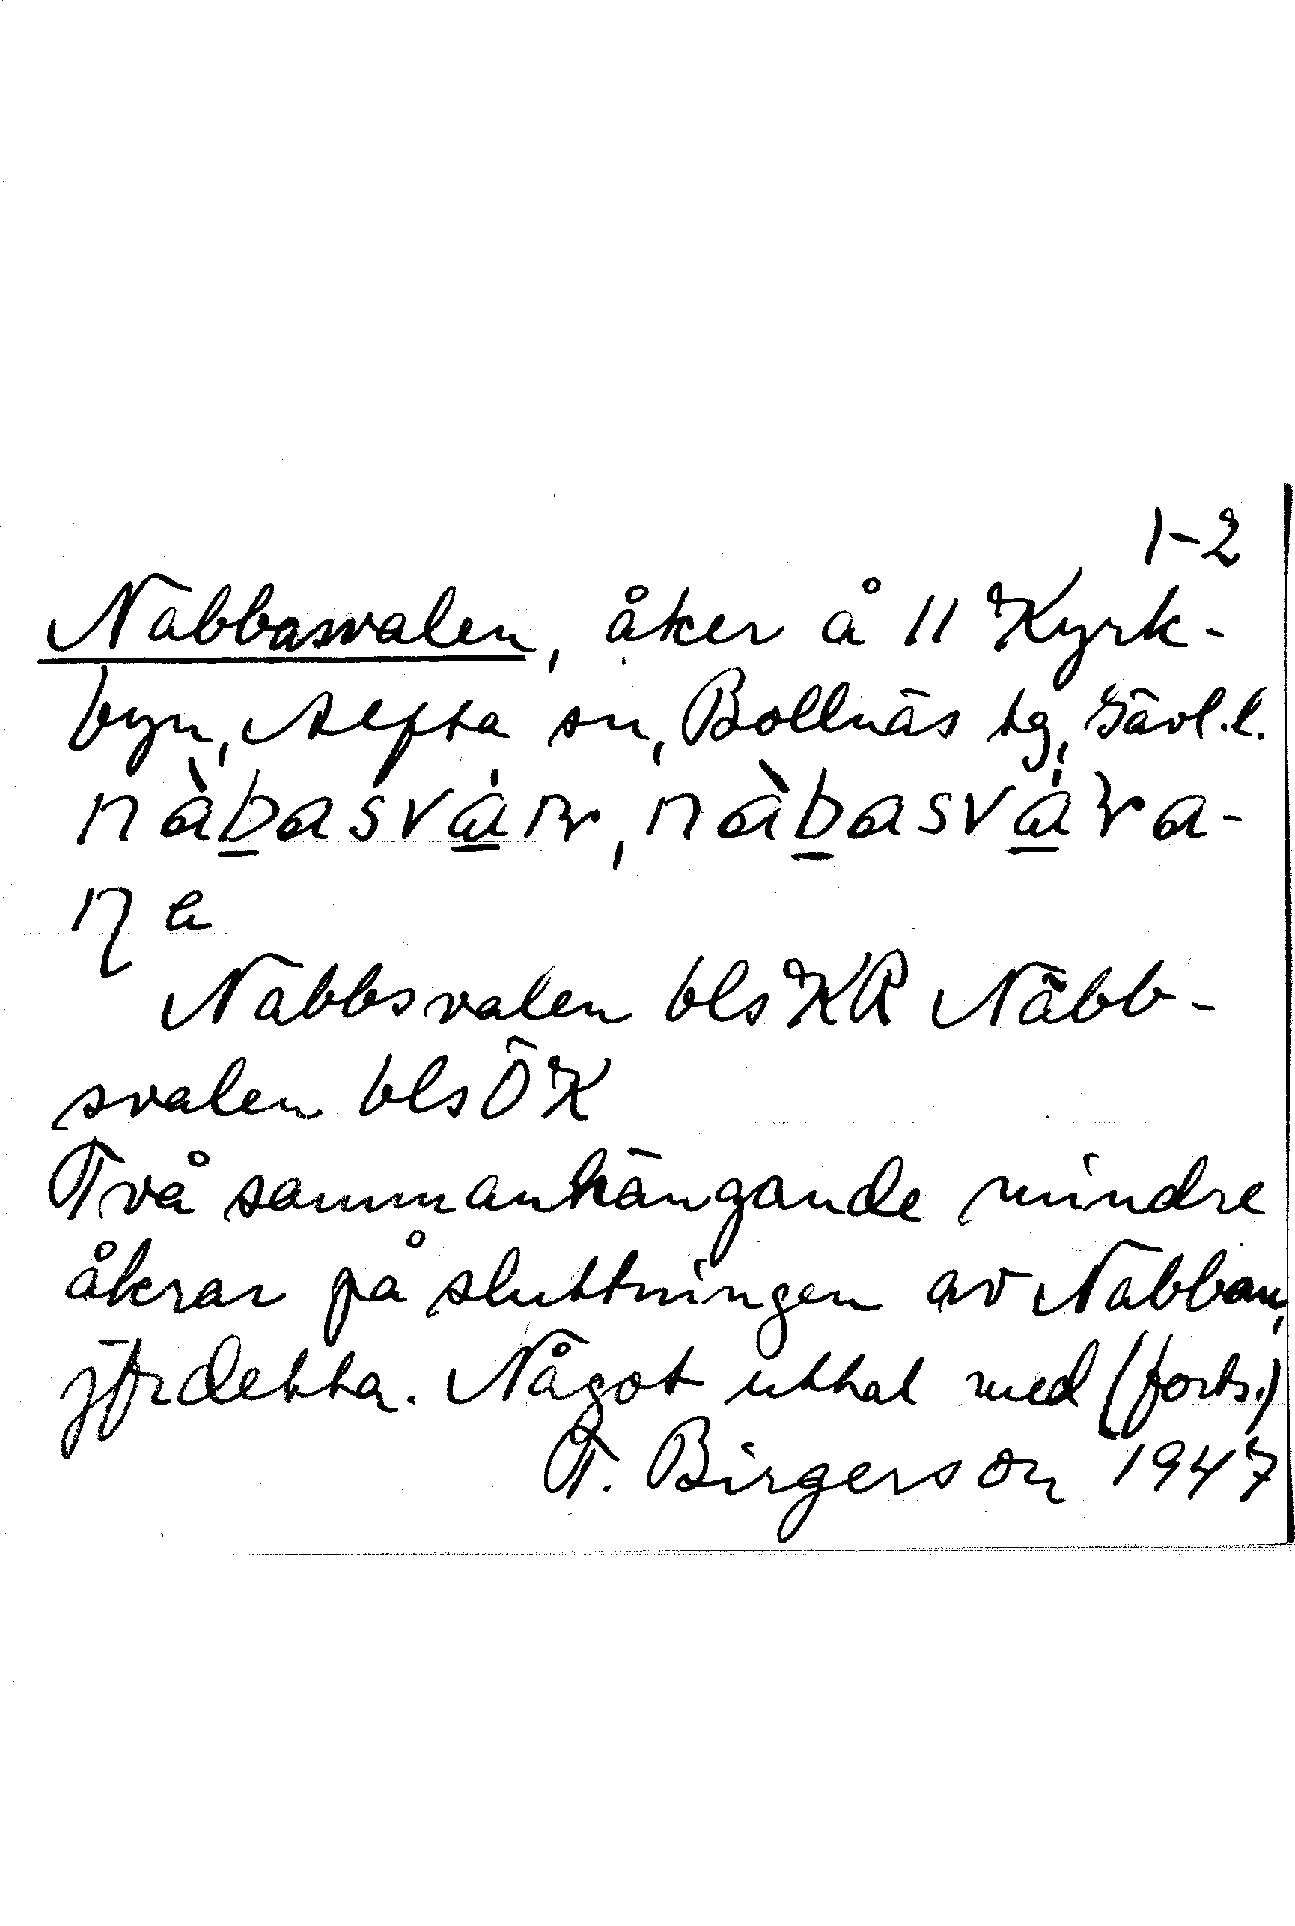 1-2
Nabbasvalen, åker å 11 Kyrk-
byn, Alfta sn, Bollnäs tg, Gävl.l.
nàbasvàɴ, nàbasvàɽa-
ɳa
Nabbsvalen bls KR Näbb-
svalen bls ÖK
Två sammanhängande mindre
åkrar på sluttningen av Nabban,
jfr detta. Något uttal med (forts.)
T. Birgerson 1947